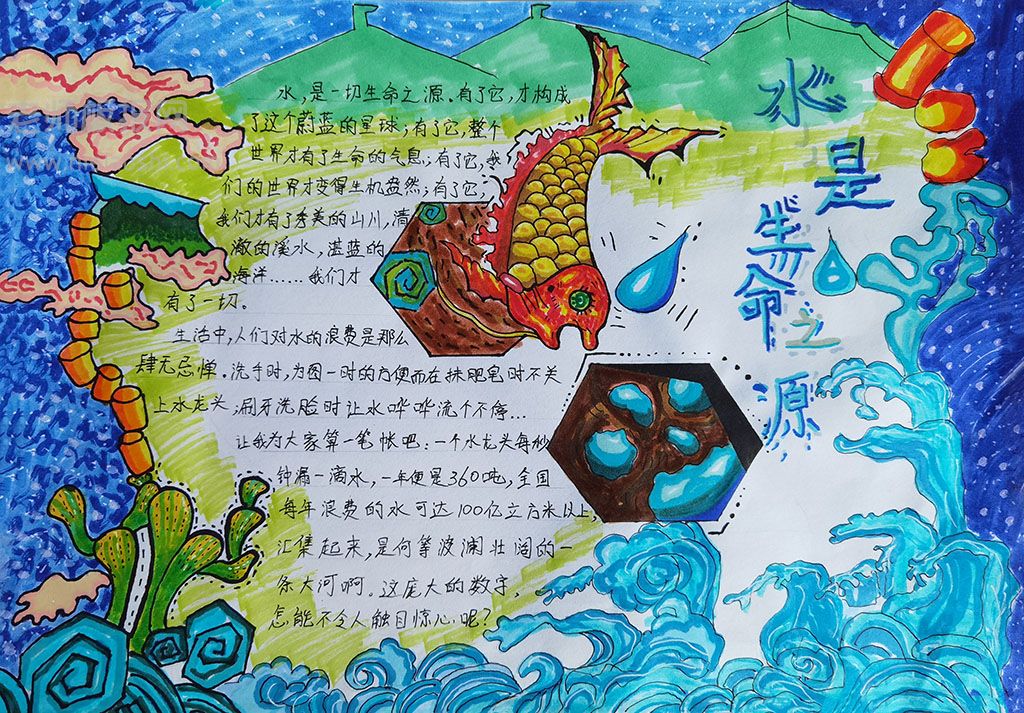 水是生命之源
水,是一切生命之源。有了它,才构成
了这个蔚蓝的星球;有了它,整个
世界才有了生命的气息;有了它,我
们的世界才变得生机盎然;有了它,
我们才有了秀美的山川,清
澈的溪水,湛蓝的
海洋……我们才
有了一切。
生活中,人们对水的浪费是那么
肆无忌惮。洗手时,为图一时的方便而在抹肥皂时不关
上水龙头;刷牙洗脸时让水哗哗流个不停...
让我为大家算一笔帐吧:一个水龙头每秒
钟漏一滴水,一年便是360吨,全国
每年浪费的水可达100亿立方米以上,
汇集起来,是何等波澜壮阔的一
条大河啊。这庞大的数字,
怎能不令人触目惊心呢?